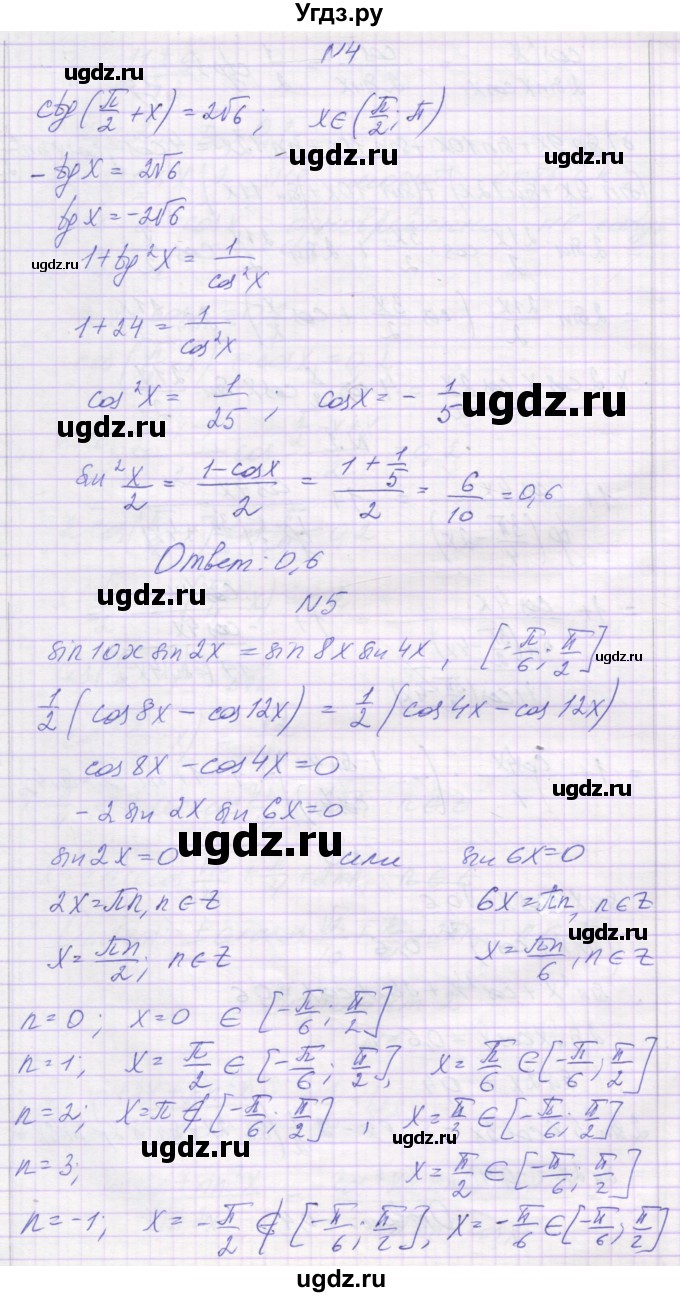 Угдз.ру
N4
ugdz.ru
ctg(π/2 + x) = 2√6; x∈(π/2; π)
ugdz.ru
-tgx = 2√6
tgx = -2√6
ugdz.ru
1+tg²x = 1/cos²x
1+24 = 1/cos²x
cos²x = 1/25; cosx = -1/5
ugdz.ru
ugdz.ru
sin² x/2 = (1-cosx)/2 = (1+1/5)/2 = 6/10 = 0,6
Ответ: 0,6
ugdz.ru
N5
sin10x sin2x = sin8x sin4x, [-π/6; π/2]
ugdz.ru
1/2 (cos8x - cos12x) = 1/2 (cos4x - cos12x)
cos8x - cos4x = 0
ugdz.ru
-2 sin2x sin6x = 0
ugdz.ru
sin2x = 0 или sin6x = 0
2x = πn, n∈Z 6x = πn, n∈Z
ugdz.ru
x = πn/2; n∈Z x = πn/6, n∈Z
n=0; x=0 ∈ [-π/6; π/2]
n=1; x = π/2 ∈ [-π/6; π/2], x = π/6 ∈ [-π/6; π/2]
n=2; x = π ∉ [-π/6; π/2], x = π/3 ∈ [-π/6; π/2]
ugdz.ru
ugdz.ru
n=3; x = π/2 ∈ [-π/6; π/2]
n=-1; x = -π/2 ∉ [-π/6; π/2], x = -π/6 ∈ [-π/6; π/2]
ugdz.ru